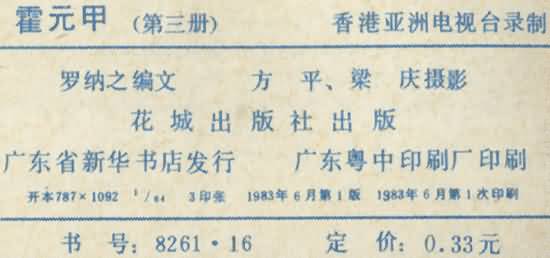 霍元甲 (第三册) 香港亚洲电视台录制
罗纳之编文 方 平、梁 庆摄影
花城出版社出版
广东省新华书店发行 广东粤中印刷厂印刷
开本787×1092 1/64 3印张 1983年6月第1版 1983年6月第1次印刷
书 号: 8261·16 定 价: 0.33元